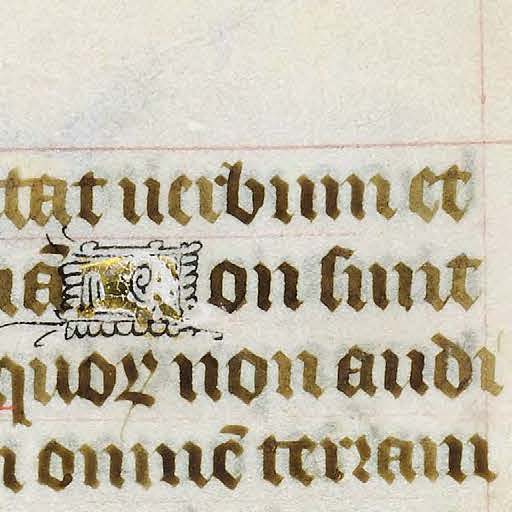 tat uerbum et
nā Non sunt
quoꝝ non audi
n omnē terram